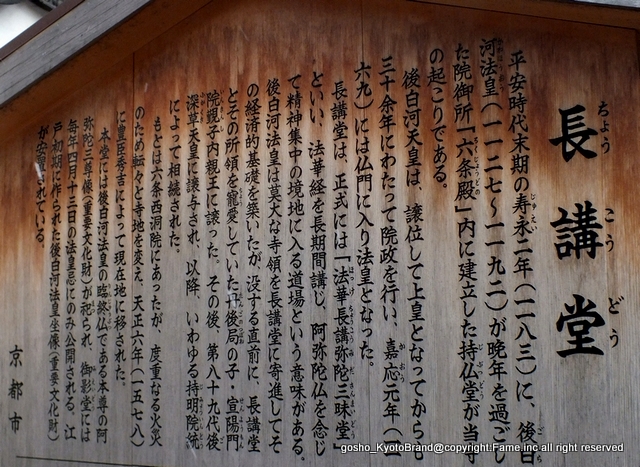 長講堂
ちょうこうどう
平安時代末期の寿永二年(一一八三)に、後白
河法皇(一一二七〜一一九二)が晩年を過ごし
た院御所「六条殿」内に建立した持仏堂が当寺
の起こりである。
後白河天皇は、譲位して上皇となってからも
三十余年にわたって院政を行い、嘉応元年(一一
六九)には仏門に入り法皇となった。
長講堂は、正式には「法華長講弥陀三昧堂」
といい、法華経を長期間講じ、阿弥陀仏を念じ
て精神集中の境地に入る道場という意味がある。
後白河法皇は莫大な寺領を長講堂に寄進してそ
の経済的基礎を築いたが、没する直前に、長講堂
とその所領を寵愛していた丹後局の子・宣陽門
院覲子内親王に譲った。その後、第八十九代後
深草天皇に譲与され、以降、いわゆる持明院統
によって相続された。
もとは六条西洞院にあったが、度重なる火災
のため転々と寺地を変え、天正六年(一五七八)
に豊臣秀吉によって現在地に移された。
本堂には後白河法皇の臨終仏である本尊の阿
弥陀三尊像(重要文化財)が祀られ、御影堂には
毎年四月十三日の法皇忌にのみ公開される、江
戸初期に作られた後白河法皇坐像(重要文化財)
が安置されている。
京都市
gosho_KyotoBrand@copyright.Fame.inc all right reserved